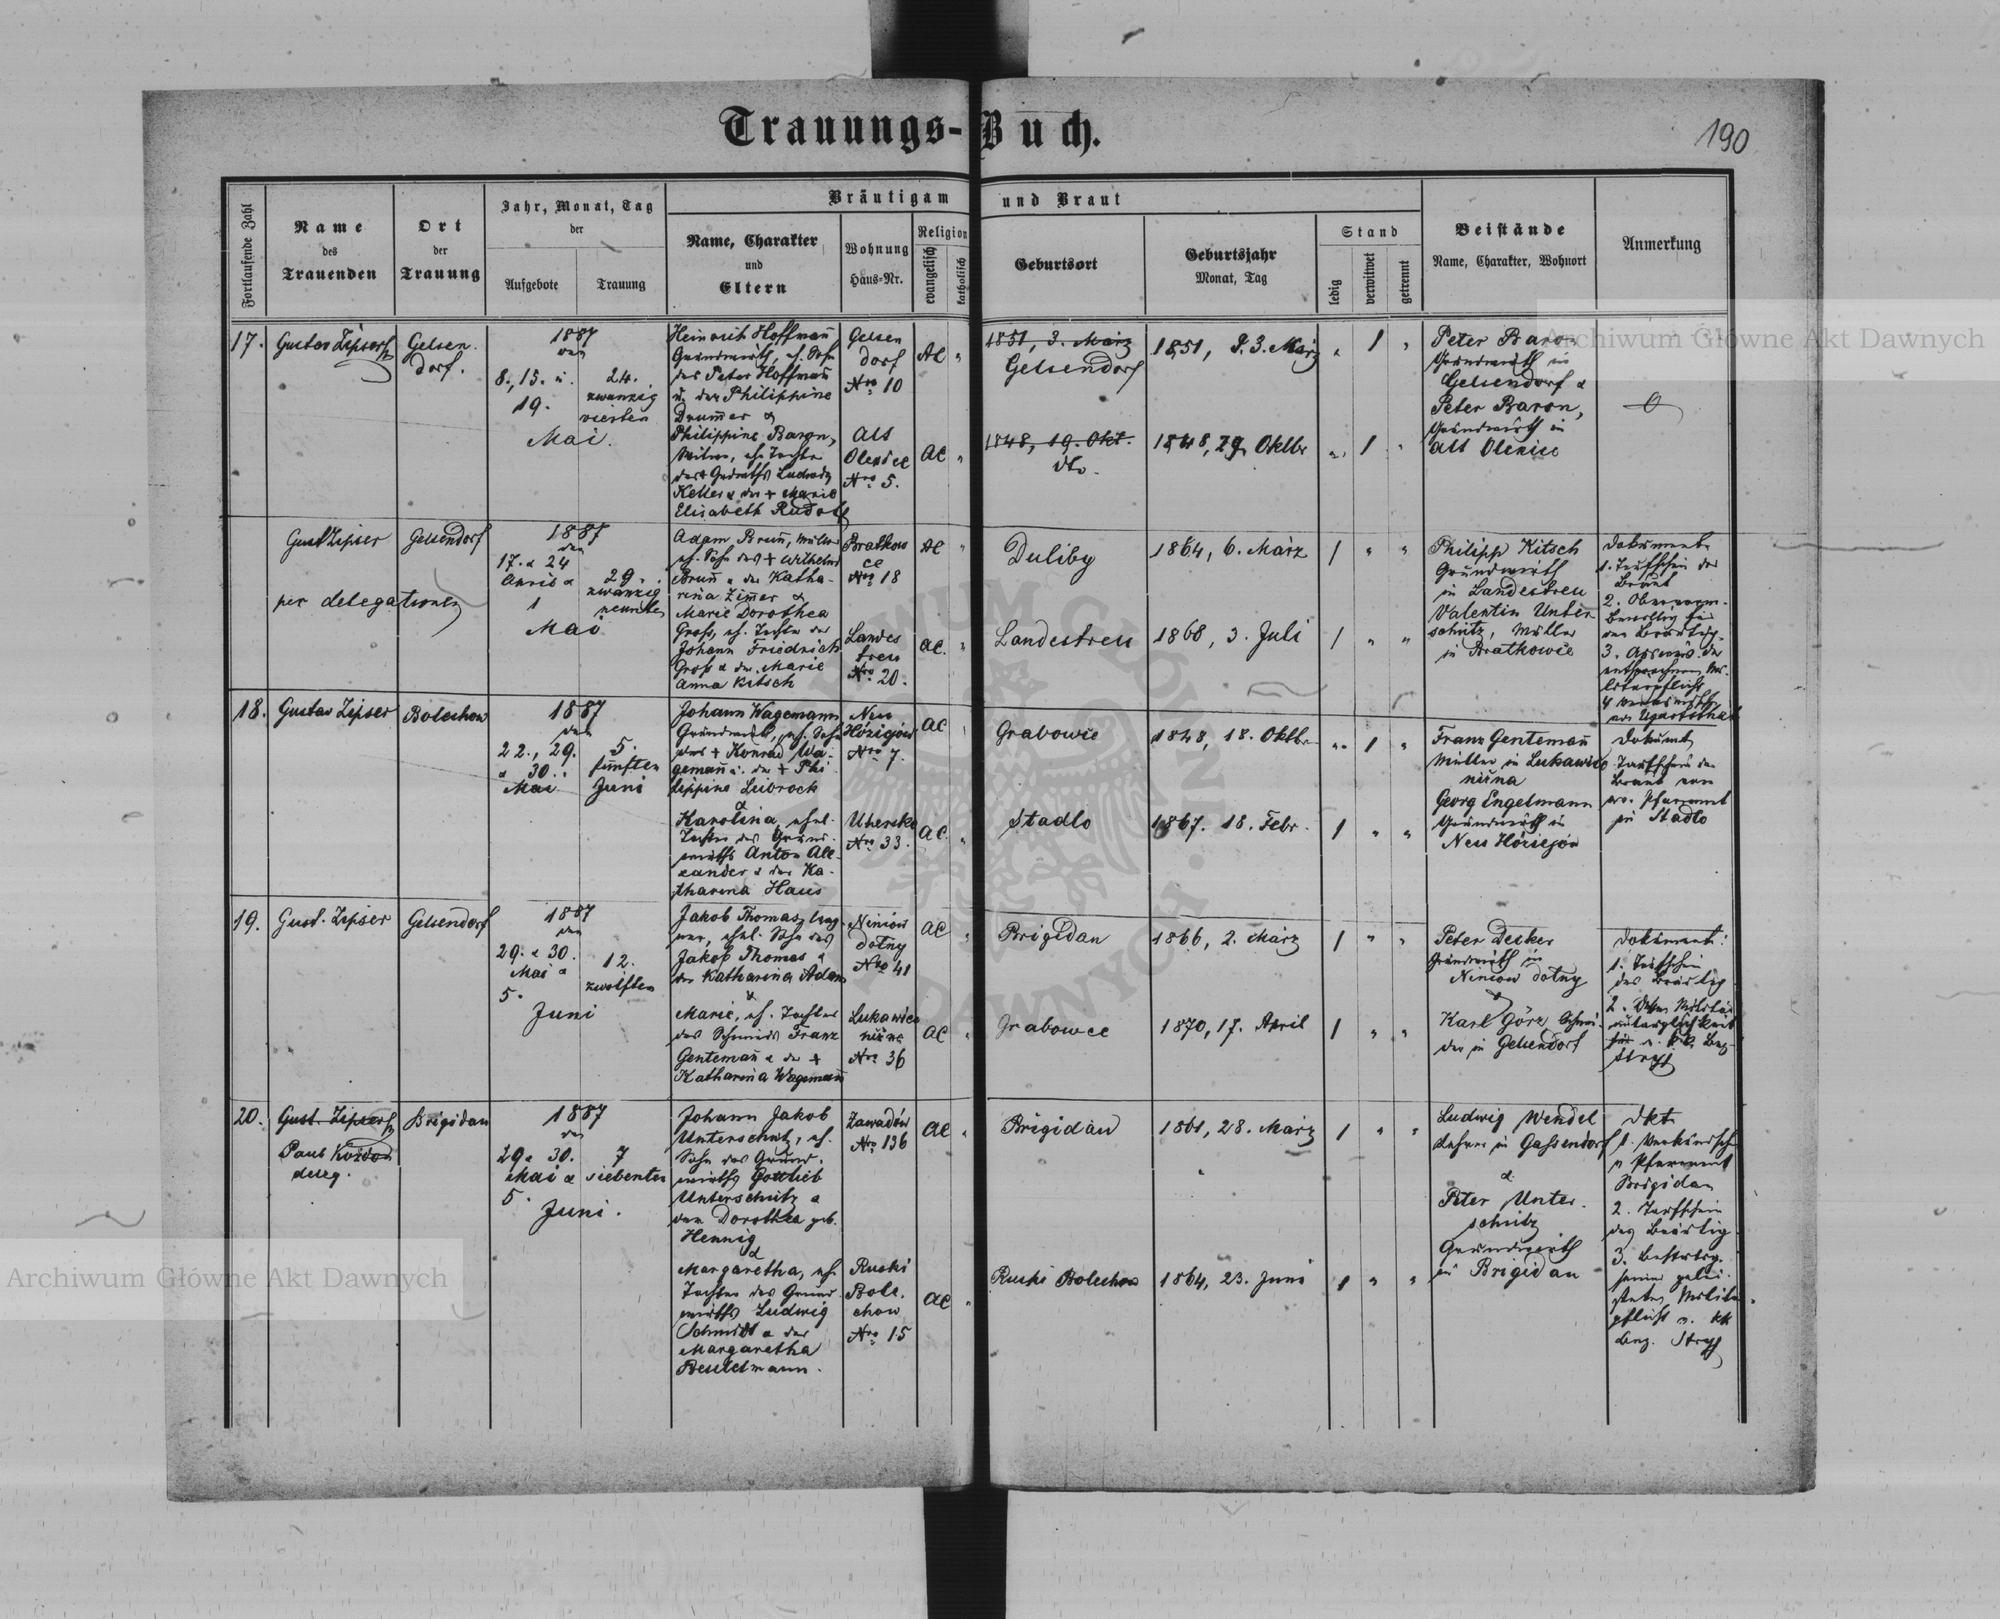 Trauungs-Buch.
190
Fortlaufende Zahl
Name
des
Trauenden
Ort
der
Trauung
Jahr, Monat, Tag
der
Aufgebote
Trauung
Bräutigam und Braut
Name, Charakter
und
Eltern
Wohnung
Haus-Nr.
Religion
evangelisch
katholisch
Geburtsort
Geburtsjahr
Monat, Tag
Stand
ledig
verwitwet
getrennt
Beistände
Name, Charakter, Wohnort
Anmerkung
17.
Gustav Zipser
Gelsen
dorf.
1887
den
8., 15. u.
19.
Mai.
24.
zwanzig
vierten
Heinrich Hoffmañ
Grundwirth, eh. Sohn
des Peter Hoffmañ
u. der Philippine
Drum̄er &
Philippine Baron,
Witwe, eh. Tochter
Keller & der + Marie
Elisabeth Rudolf
Gelsen
dorf
Nro 10
Alt
Olexice
Nro 5.
AC
AC
1851, 3. März
Gelsendorf
1848, 19. Okt.
dto.
1851, 3. März
1848, 29. Oktbr
1
1
Peter Baron
Grundwirth in
Gelsendorf &
Peter Baron,
Grundwirth in
Alt Olexice
Gust Zipser
per delegationem
Gelsendorf
1887
den
17. & 24
April &
1
Mai
29.
zwanzig
neunten
Adam Bruñ, Müller
eh. Sohn des + Wilhelm
Bruñ & der Katha-
rina Zim̄er &
Marie Dorothea
Gross, eh. Tochter des
Johann Friedrich
Gross & der Marie
Anna Kitsch
Bratkow
ce
Nro 18
Landes
treu
Nro 20.
AC
AC.
Duliby
Landestreu
1864, 6. März
1868, 3. Juli
Philipp Kitsch
Grundwirth
in Landestreu
Valentin Unter
schütz, Müller
in Bratkowce
Dokumente
1. Taufschein der
Braut
18.
Gustav Zipser
Bolechow
1887
den
22., 29.
& 30.
Mai
5.
fünften
Juni
Johann Wagemann
Grundwirth, eh. Sohn
des + Konrad Wa-
gemañ u. der + Phi
lippine Leibrock
&
Karolina, ehel.
Tochter des Grund-
wirths Anton Ale-
xander & der Ka-
tharina Haus
Neu
Hörigow
Nro 7.
Uhersko
Nro 33.
AC
AC
Grabowce
Stadlo
1848, 18. Oktbr
1867. 18. Febr.
Franz Gentemañ
Müller in Lukawice
nižna
Georg Engelmann
Grundwirth in
Dokumt
Taufschein der
Braut vom
ev. Pfarramt
zu Stadlo
19.
Gust. Zipser
Gelsendorf
1887
den
29. & 30.
Mai &
5.
Juni
12.
zwölften
Jakob Thomas, Wag-
ner, ehel. Sohn des
Jakob Thomas &
der Katharina Adam
&
Marie, eh. Tochter
des Schmieds Franz
Gentemañ & der +
Katharina Wagemañ
Niniow
dolny
Nro 41
Lukawice
nižne
Nro 36
AC
AC
Brigidau
Grabowce
1866, 2. März
1870, 17. April
Peter Decker
Grundwirth in
Niniow dolny
&
Karl Görz, Schmi-
der in Gelsendorf
Dokumente:
1. Taufschein
des Bräutig
20.
Gust. Zipser
Paul Kozdon
deleg.
Brigidau
1887
den
29 & 30.
Mai &
5.
Juni.
7
siebenten
Johann Jakob
Unterschütz, eh.
Sohn des Grund-
wirths Gottlieb
Unterschütz &
der Dorothea geb.
Hennig
&
Margaretha, eh.
Tochter des Grund
wirths Ludwig
Schmidt & der
Margaretha
Beutelmann.
Zawadów
Nro 136
Ruski
Bole.
chow
Nro 15
AC
AC
Brigidau
Ruski Bolechow
1861, 28. März
1864, 23. Juni
Ludwig Wendel
Lehrer in Gassendorf
&
Peter Unter.
schütz
Grundwirth
in Brigidau
Dkte
Pfarramt
Brigidau
2. Taufschein
des Bräutig
Archiwum Główne Akt Dawnych
Archiwum Główne Akt Dawnych
ARCHIWUM GŁÓWNE AKT DAWNYCH